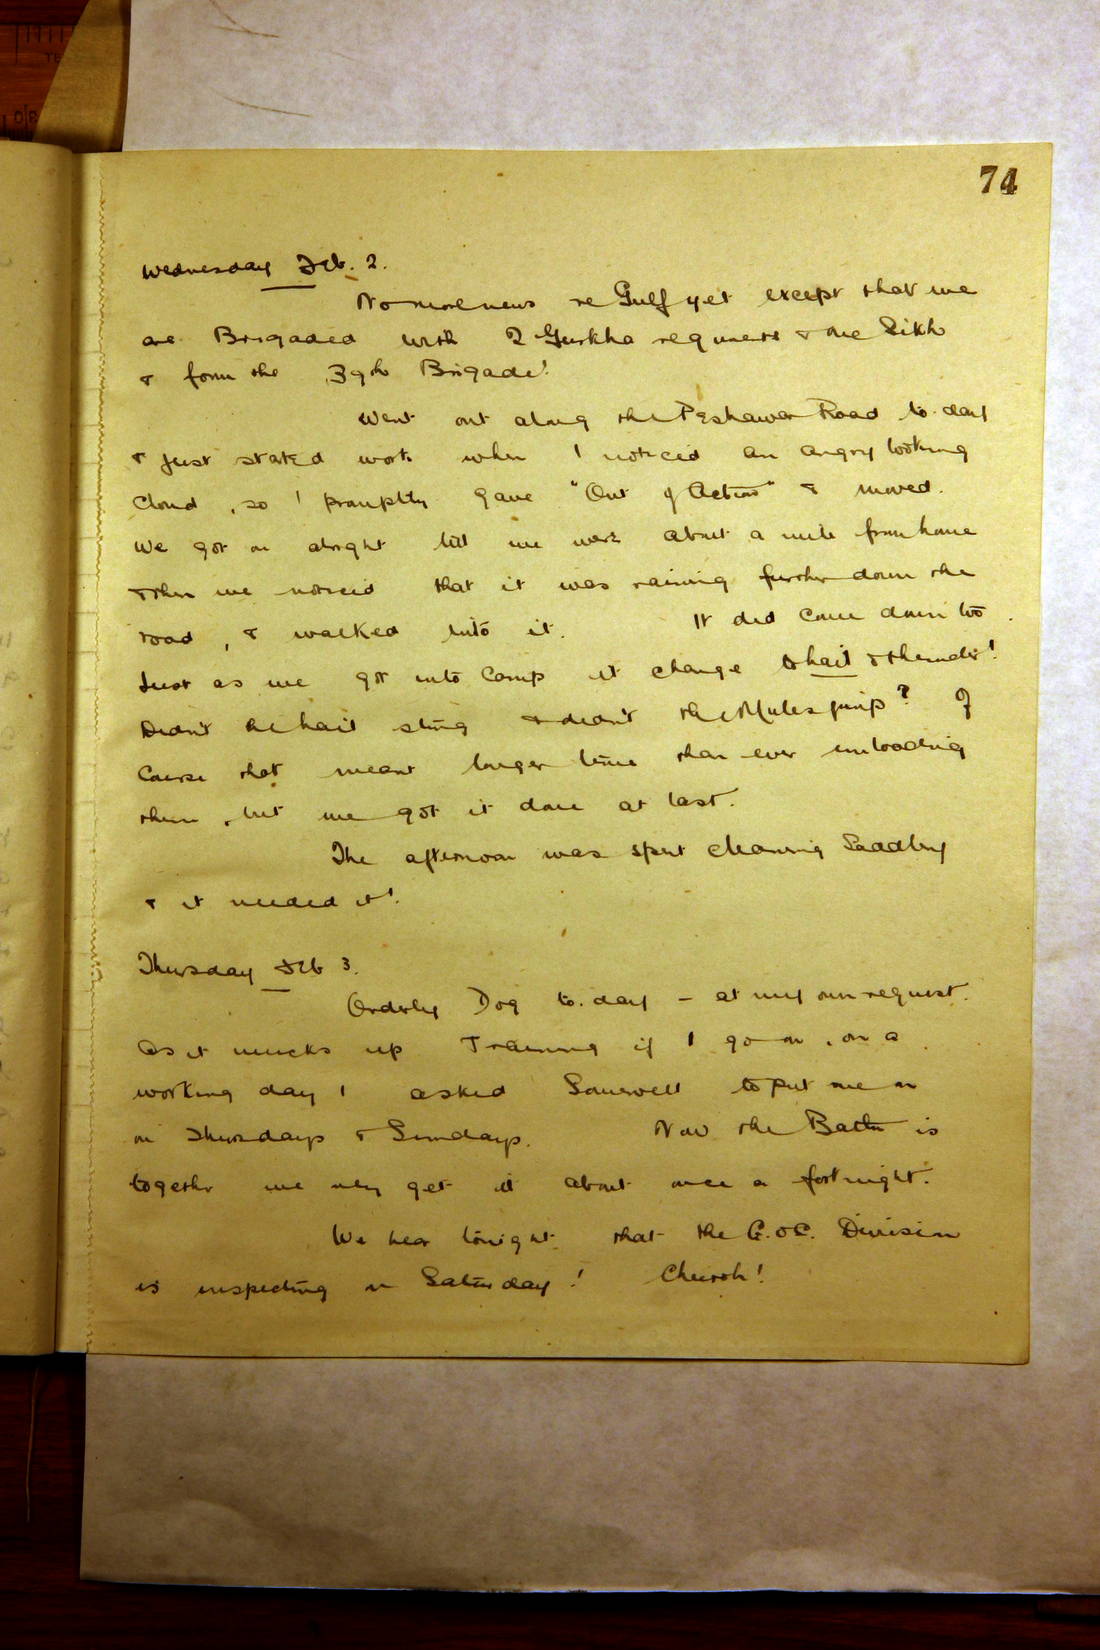 74
Wednesday Feb. 2.
No more news re Gulf yet except that we
are Brigaded with 2 Gurkha regiments & one Sikh
& form the 39th Brigade!
Went out along the Peshawar Road to-day
& just started work when I noticed an angry looking
cloud, so I promptly gave "Out of Action" & moved.
We got on alright till we were about a mile from home
& then we noticed that it was raining further down the
road, & walked into it. It did come down too.
Just as we got into Camp it change to hail & thunder!
Didn't the hail sting & didn't the Mules jump? Of
Course that meant longer time than ever unloading
them, but we got it done at last.
The afternoon was spent cleaning Saddlery
& it needed it!
Thursday Feb 3.
Orderly Dog to-day - at my own request.
As it mucks up Training if I go on, on a
working day I asked to put me on
on Thursdays & Sundays. Now the Battn is
together we only get it about once a fortnight.
We hear tonight that the G.O.C. Division
is inspecting on Saturday! Church!